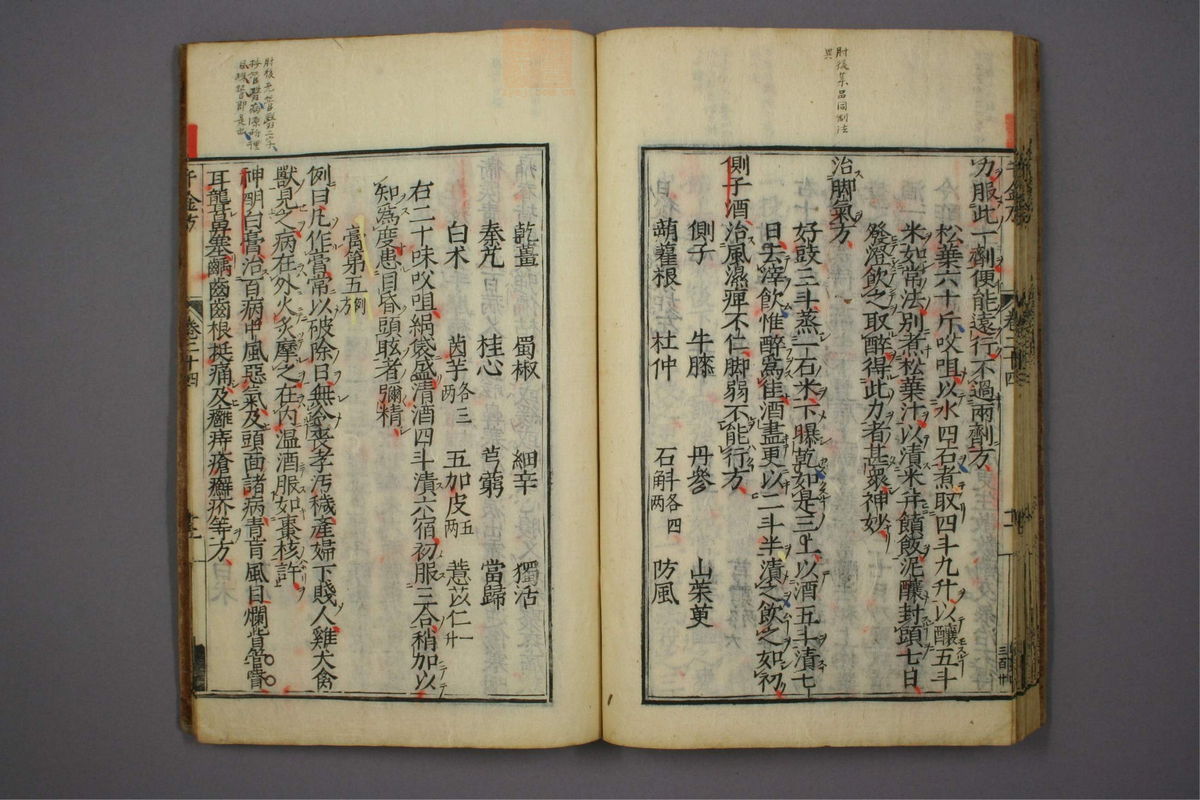 肘後集品同制法
異
力服此一劑便能遠行不過兩劑方
松葉六十斤㕮咀以水四石煮取四斗九升以釀五斗
米如常法別煮松葉汁以漬米并饙飯泥釀封頭七日
發澄飲之取醉得此力者甚衆神妙
治脚氣方
好豉三斗蒸一石米下曝乾如是三上以酒五斗漬七
日去滓飲惟醉爲佳酒盡更以二斗半漬之飲之如初
側子酒治風濕痹不仁脚弱不能行方
側子 牛膝 丹參 山茱萸
蒴藋根 杜仲 石斛各四兩 防風
乾薑 蜀椒 細辛 獨活
秦艽 桂心 芎藭 當歸
白术 茵芋各三兩 五加皮五兩 薏苡仁一升
右二十味㕮咀絹袋盛清酒四斗漬六宿初服三合稍加以
知爲度患目昏頭眩者彌精
膏第五例方
例曰凡作膏常以破除日無令喪孝汚穢產婦下賤人雞犬禽
獸見之病在外火炙摩之在内温酒服如棗核許
神明白膏治百病中風惡氣及頭面諸病青盲風目爛眥管瞖
耳聾鼻塞齲齒齒根挺痛及癰痔瘡癬疥等方
千金方
卷二十四